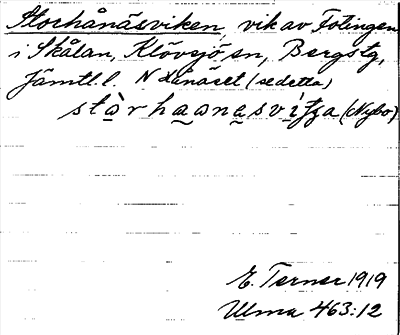 Storhånäsviken, vik av Fotingen
i Skålan, Klövsjö sn, Bergs tg,
Jämtl. l. N Lånäset (se detta)
stàrhaanasvìtza (Nybo)
E. Terner 1919
Ulma 463:12